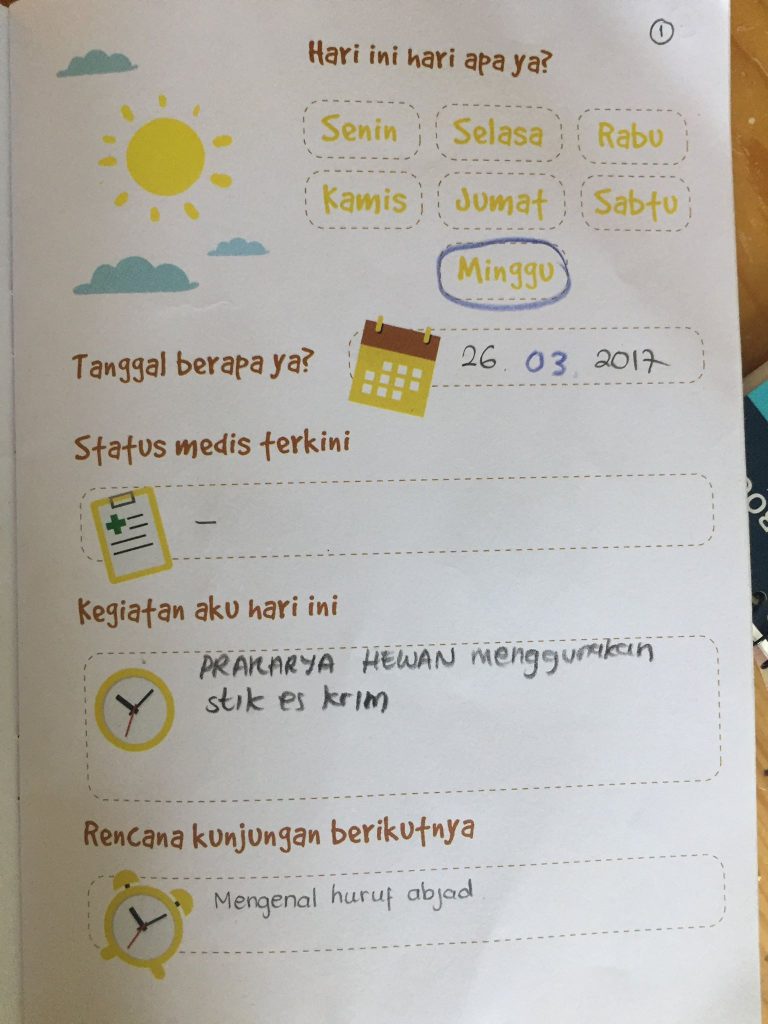 1
Hari ini hari apa ya?
Senin Selasa Rabu
Kamis Jumat Sabtu
Minggu
Tanggal berapa ya? 26. 03. 2017
Status medis terkini
–
Kegiatan aku hari ini
PRAKARYA HEWAN menggunakan
stik es krim
Rencana kunjungan berikutnya
Mengenal huruf abjad